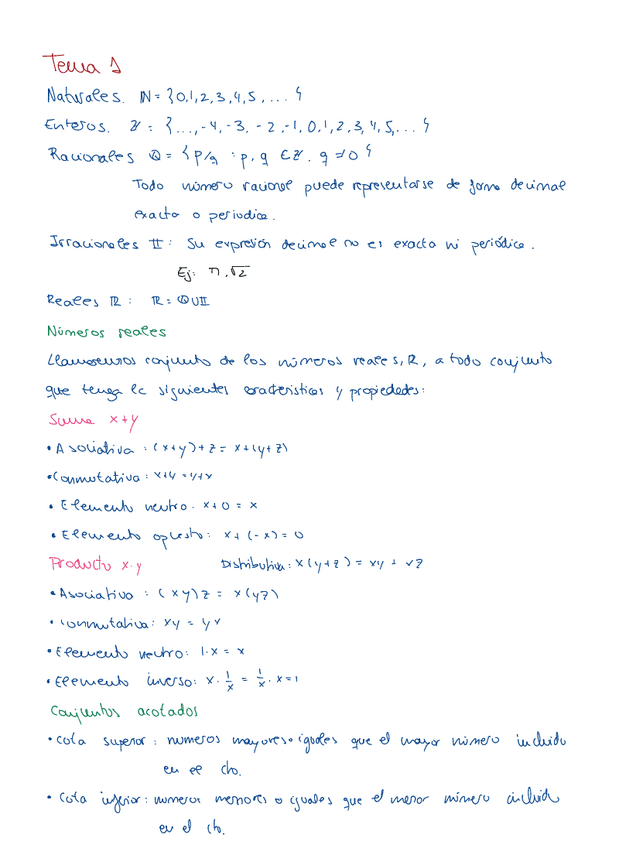 Tema 1
Naturales. ℕ = {0,1,2,3,4,5,...}
Enteros. ℤ = {...,-4,-3,-2,-1,0,1,2,3,4,5,...}
Racionales ℚ = {p/q : p,q ∈ ℤ, q ≠ 0}
Todo número racional puede representarse de forma decimal
exacta o periodica.
Irracionales 𝕀 : Su expresión decimal no es exacta ni periódica.
Ej: π, √2
Reales ℝ : ℝ = ℚ ∪ 𝕀
Números reales
Llamaremos conjunto de los números reales, ℝ, a todo conjunto
que tenga la siguientes características y propiedades:
Suma x+y
• Asociativa : (x+y)+z = x+(y+z)
• Conmutativa : x+y = y+x
• Elemento neutro. x+0 = x
• Elemento opuesto: x+(-x) = 0
Producto x·y Distributiva: x(y+z) = xy + xz
• Asociativa : (xy)z = x(yz)
• Conmutativa: xy = yx
• Elemento neutro: 1·x = x
• Elemento inverso: x · 1/x = 1/x · x = 1
Conjuntos acotados
• cota superior : numeros mayores o iguales que el mayor número incluido
en el cto.
• Cota inferior : numeros menores o iguales que el menor número incluido
en el cto.